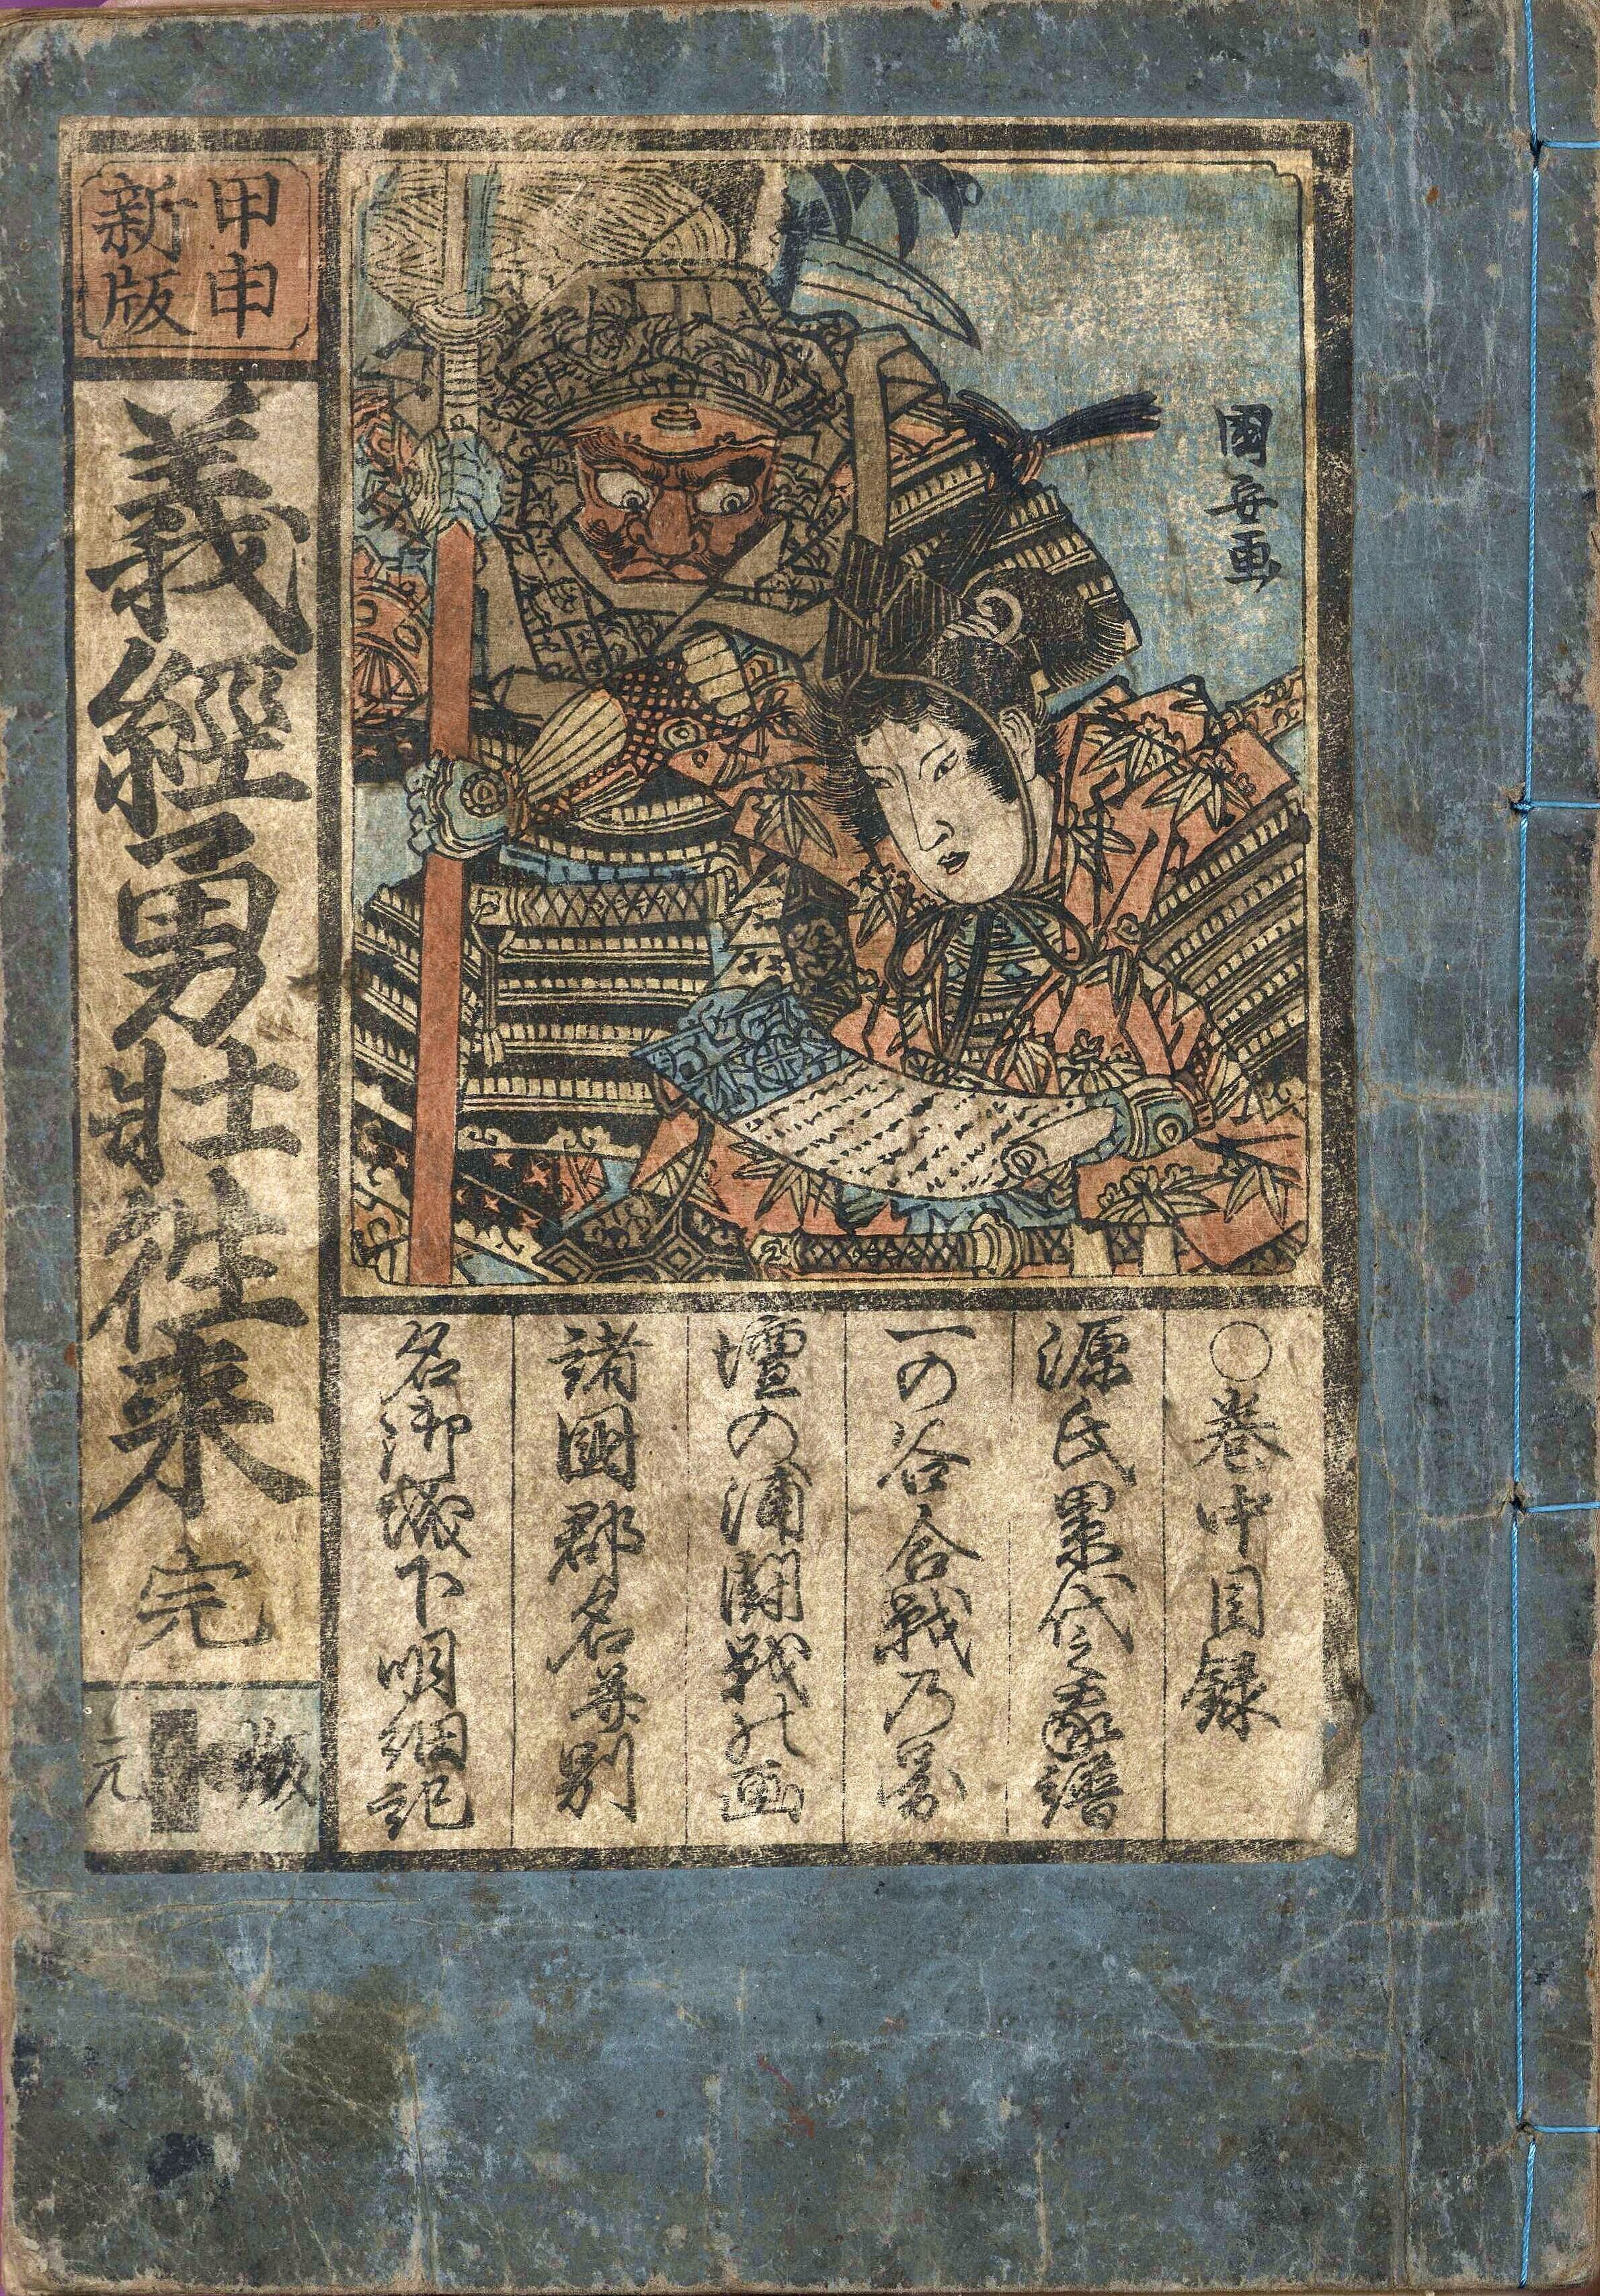 國安画
○巻中目録
源氏累代之家譜
一の谷合戦乃圖
壇の浦闘戦の画
諸國郡名并別
名御城下明細記
甲申
新版
義經勇壮往来 完
版
元